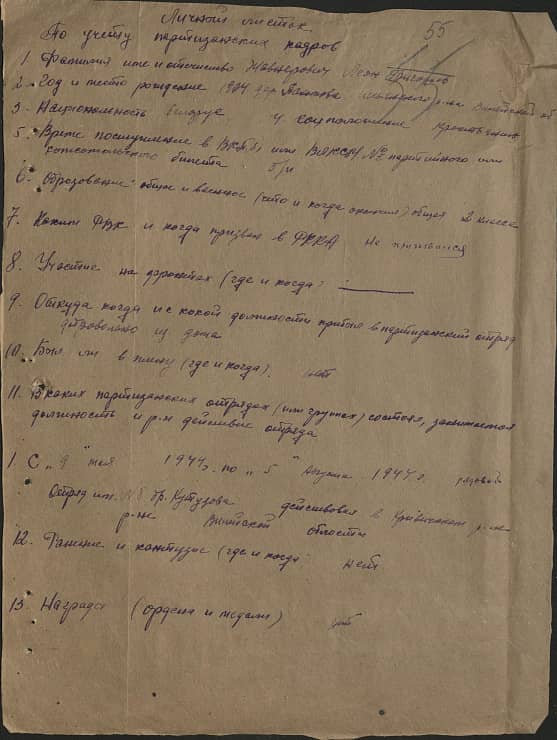 Личный листок
55
По учету партизанских кадров
1. Фамилия имя и отчество Леон Григорьев
2. Год и место рождение 1904 дер. р-на Вилейской об
3. Национальность белорус 4 соцположение крестьянин
5. Время поступление в ВКП(б) или ВЛКСМ № партийного или
комсомольского билета б/п
6. Образование: общее и военное (что и когда окончил) общее 2 класса
7. Каким РВК и когда призван в РККА не призывался
8. Участие на фронтах (где и когда)
9. Откуда когда и с какой должности прибыл в партизанский отряд
добровольно из дома
10. Был ли в плену (где и когда). нет
11. В каких партизанских отрядах (или группах) состоял, занимаемая
должность и р-н действие отряда
1. С "9" мая 1944г. по "5" Августа 1944 г. рядовой
Отряд им. №5 бр. Кутузова действовал в р-не
р-не Вилейской области
12. Ранение и контузие (где и когда нет
13. Награда (ордена и медали) нет